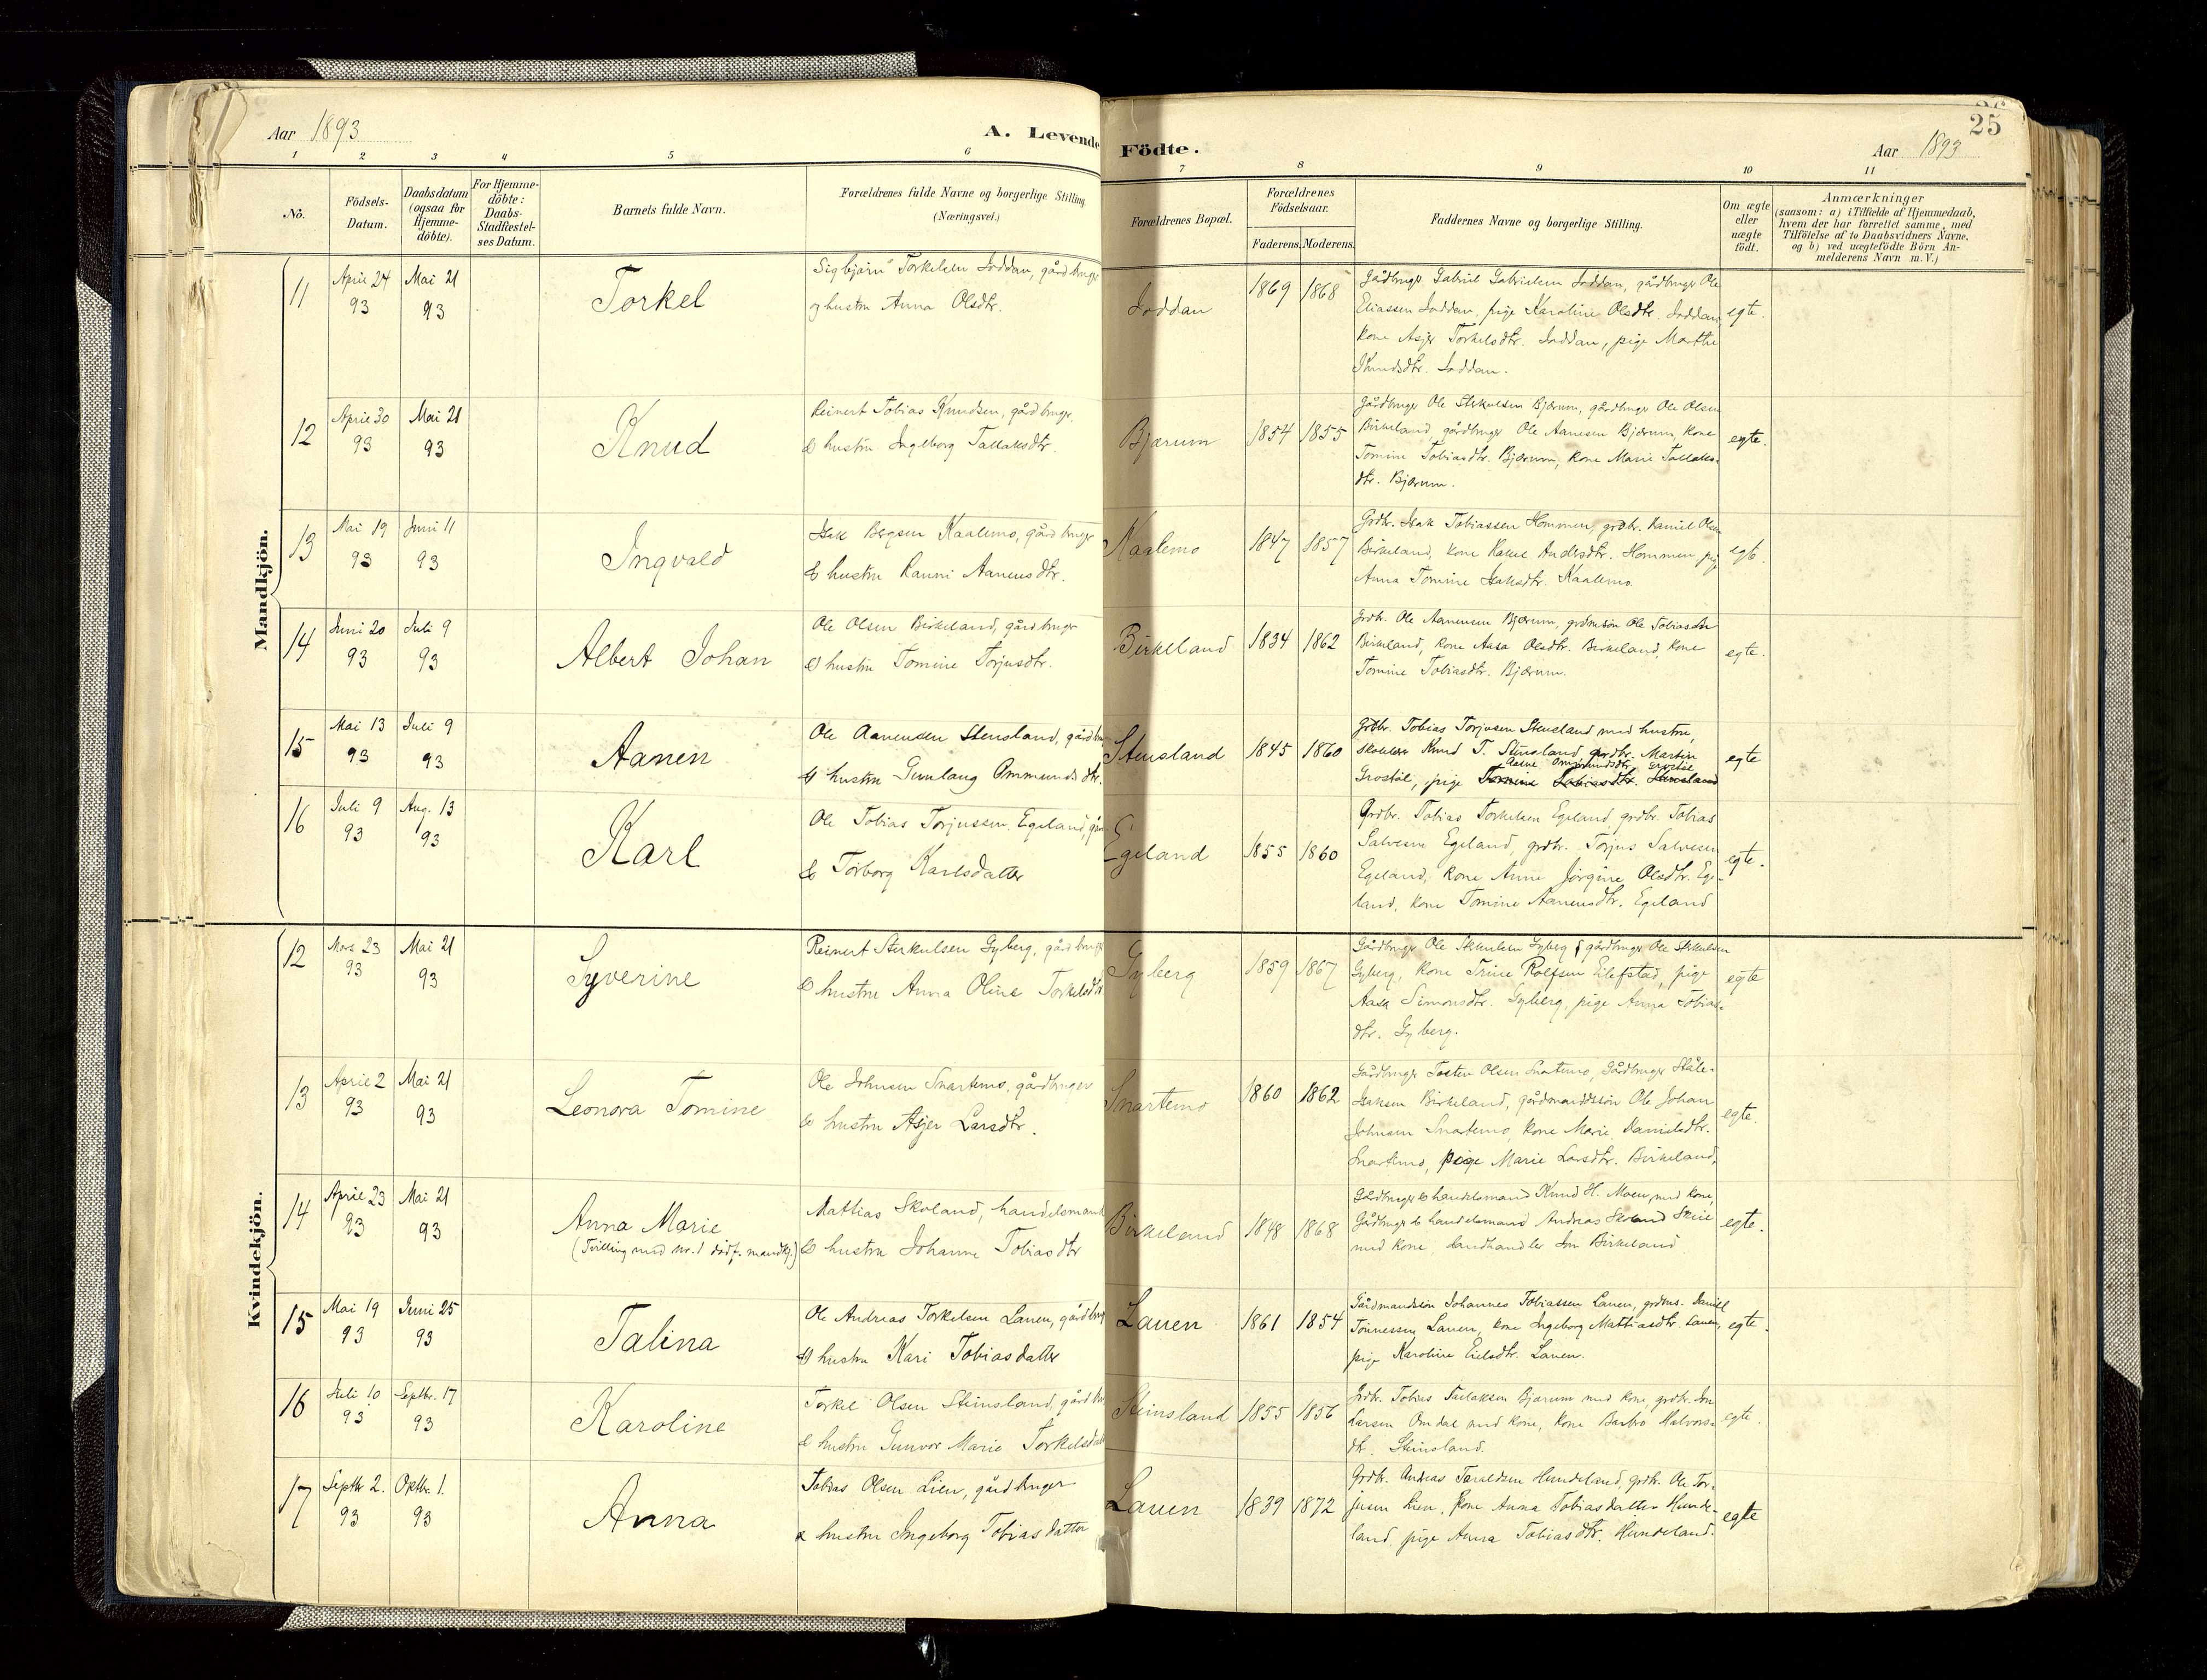 Aar 1893
A. Levende Födte.
25
Aar 1893
1 2 3 4 5 6 7 8 9 10 11
No.
Födsels-Datum.
Daabsdatum (ogsaa for Hjemme-döbte).
For Hjemme-döbte: Daabs-Stadfæstel-ses Datum.
Barnets fulde Navn.
Forældrenes fulde Navne og borgerlige Stilling
(Næringsvei.)
Forældrenes Bopæl.
Forældrenes Födselsaar.
Faderens. Moderens.
Faddernes Navne og borgerlige Stilling.
Om ægte eller uægte födt.
Anmærkninger
(saasom: a) i Tilfælde af Hjemmedaab,
hvem der har forrettet samme, med
Tilföielse af to Daabsvidners Navne,
og b) ved uægtefödte Börn An-
melderens Navn m. V.)
Mandkjön.
11 April 24 93 Mai 21 93 Torkel
Sigbjørn Torkelsen Joddan, gårdbruger
og hustru Anna Olsdtr.
Joddan 1869 1868
Gårdbruger Gabriel Gabrielsen Joddan, gårdbruger Ole
Eliassen Joddan, pige Karoline Olsdtr. Joddan,
kone Asjer Torkelsdtr. Joddan, pige Marthe
Knudsdtr. Joddan.
egte.
12 April 30 93 Mai 21 93 Knud
Reinert Tobias Knudsen, gårdbruger,
& hustru Ingeborg Tallaksdtr.
Bjærum 1854 1855
Gårdbruger Ole Sterkulsen Bjærum, gårdbruger Ole Olsen
Birkeland, gårdbruger Ole Aanensen Bjærum, kone
Tomine Tobiasdtr. Bjærum, kone Marie Tallaks-
dtr. Bjærum.
egte.
13 Mai 19 93 Juni 11 93 Ingvald
Isak Bergsen Kaalemo, gårdbruger
& hustru Ranni Aanensdtr.
Kaalemo 1847 1857
Grdbr. Isak Tobiassen Hommen, grdbr. Daniel Olsen
Birkeland, kone Rakel Andersdtr. Hommen, pige
Anna Tomine Isaksdtr. Kaalemo.
egte.
14 Juni 20 93 Juli 9 93 Albert Johan
Ole Olsen Birkeland, gårdbruger
& hustru Tomine Torjusdtr.
Birkeland 1834 1862
Grdbr. Ole Aanensen Bjærum, grdmsøn Ole Tobiassen
Birkeland, kone Aasa Olsdtr. Birkeland, kone
Tomine Tobiasdtr. Bjærum.
egte.
15 Mai 13 93 Juli 9 93 Aanen
Ole Aanensen Stensland, gårdbru
& hustru Gunlaug Ommundsdtr.
Stensland 1845 1860
Grdbr. Tobias Torjusen Stensland med hustru,
skolelærer Knud T. Stensland, grdbr. Martin
Aasne Ommundsdtr. Grostøl
Grostøl, pige Tomine Tobiasdtr. Stensland
egte
16 Juli 9 93 Aug. 13 93 Karl
Ole Tobias Torjussen Egeland, går
& Torborg Karlsdatter
Egeland 1855 1860
Grdbr. Tobias Torkelsen Egeland, grdbr. Tobias
Salvesen Egeland, grdbr. Torjus Salvesen
Egeland, kone Anne Jørgine Olsdtr. Ege-
land, kone Tomine Aanensdtr. Egeland
egte.
Kvindekjön.
12 Mars 23 93 Mai 21 93 Syverine
Reinert Sterkulsen Gyberg, gårdbruger
& hustru Anna Oline Torkelsdtr.
Gyberg 1859 1867
Gårdbruger Ole Sterkulsen Gyberg, gårdbruger Ole Sterkulsen
Gyberg, kone Trine Rolfsen Eilefstad, pige
Aasa Simonsdtr. Gyberg, pige Anna Tobias-
dtr. Gyberg.
egte
13 April 2 93 Mai 21 93 Leonora Tomine
Ole Johnsen Snartemo, gårdbruger
& hustru Asjer Larsdtr.
Snartemo 1860 1862
Gårdbruger Tosten Olsen Snartemo, Gårdbruger Ståle
Isaksen Birkeland, gårdmandssøn Ole Johan
Johnsen Snartemo, kone Marie Danielsdtr.
Snartemo, pige Marie Larsdtr. Birkeland,
egte.
14 April 23 93 Mai 21 93 Anna Marie
(Tvilling med nr. 1 dødf. mandkj.)
Mathias Skoland, handelsmand
& hustru Johanne Tobiasdtr
Birkeland 1848 1868
Gårdbruger & handelsmand Knud H. Moen, med kone,
Gårdbruger & handelsmand Andreas Skoland
med kone, landhandler Jon Birkeland
egte.
15 Mai 19 93 Juni 25 93 Talina
Ole Andreas Torkelsen Lauen, gårdbrug
& hustru Kari Tobiasdatter
Lauen 1861 1854
Gårdmandssøn Johannes Tobiassen Lauen, grdms. Daniel
Tønnessen Lauen, kone Ingeborg Mathiasdtr. Lauen,
pige Karoline Eilsdtr. Lauen.
egte.
16 Juli 10 93 Septbr. 17 93 Karoline
Torkel Olsen Steinsland, gårdbr
& hustru Gunvor Marie Torkelsdatt
Steinsland 1855 1856
Grdbr. Tobias Tallaksen Bjærum med kone, grdbr. Jon
Larsen Omdal med kone, kone Barbro Halvors-
dtr. Steinsland.
egte.
17 Septbr 2. 93 Oktbr. 1. 93 Anna
Tobias Olsen Lien, gårdbruger
& hustru Ingeborg Tobiasdatter
Lauen 1839 1872
Grdbr. Andreas Taraldsen Hundeland, grdbr. Ole Tor-
jusen Lien, kone Anna Tobiasdatter Hunde-
land, pige Anna Tobiasdtr. Hundeland.
egte